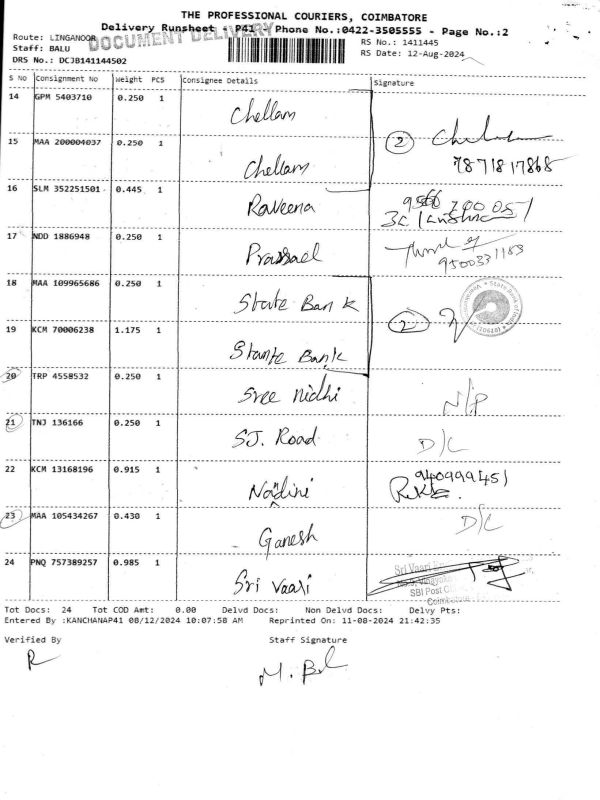 THE PROFESSIONAL COURIERS, COIMBATORE
Delivery Runsheet - P41 - Phone No.:0422-3505555 - Page No.:2
DOCUMENT DELIVERY
Route: LINGANOOR
RS No.: 1411445
Staff: BALU
RS Date: 12-Aug-2024
DRS No.: DCJB141144502
S No Consignment No Weight PCS Consignee Details Signature
14 GPM 5403710 0.250 1 Chellam
15 MAA 200004037 0.250 1 Chellam 2
7871817868
16 SLM 352251501 0.445 1 Raveena
17 NDD 1886948 0.250 1
9500331183
18 MAA 109965686 0.250 1 State Bank 2
19 KCM 70006238 1.175 1 Stante Bank
20 TRP 4558532 0.250 1 Sree Nidhi N/P
21 TNJ 136166 0.250 1 SJ. Road D/C
22 KCM 13168196 0.915 1 Nadini 940999451
23 MAA 105434267 0.430 1 Ganesh D/C
24 PNQ 757389257 0.985 1 Sri Vaari
Sri Vaari
SBI Post
Coimbatore
Tot Docs: 24 Tot COD Amt: 0.00 Delvd Docs: Non Delvd Docs: Delvy Pts:
Entered By :KANCHANAP41 08/12/2024 10:07:58 AM Reprinted On: 11-08-2024 21:42:35
Verified By Staff Signature
R M. Bal